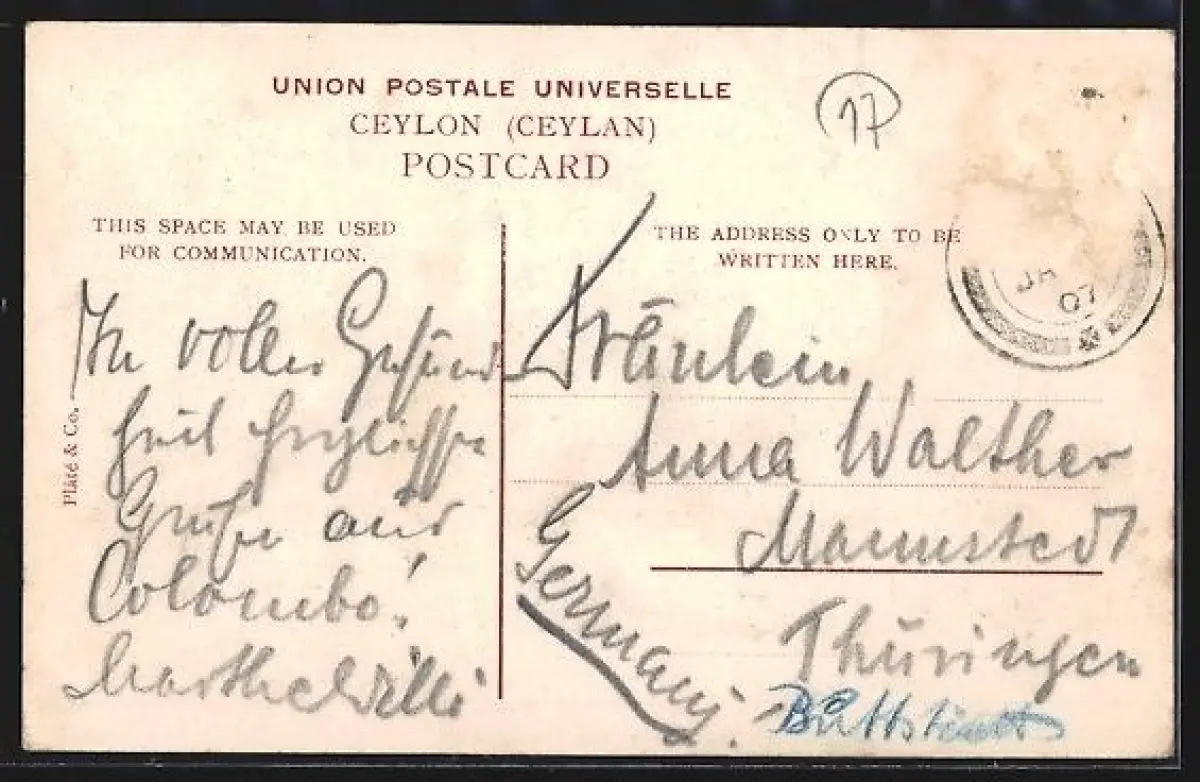 UNION POSTALE UNIVERSELLE
CEYLON (CEYLAN)
POSTCARD
17
THIS SPACE MAY BE USED
FOR COMMUNICATION.
THE ADDRESS ONLY TO BE
WRITTEN HERE.
JA
07
Plâté & Co.
In voller Gesund-
heit herzlichste
Grüße aus
Colombo!
Fräulein
Anna Walther
Mannstedt
Thüringen
Germany.
Buttstädt